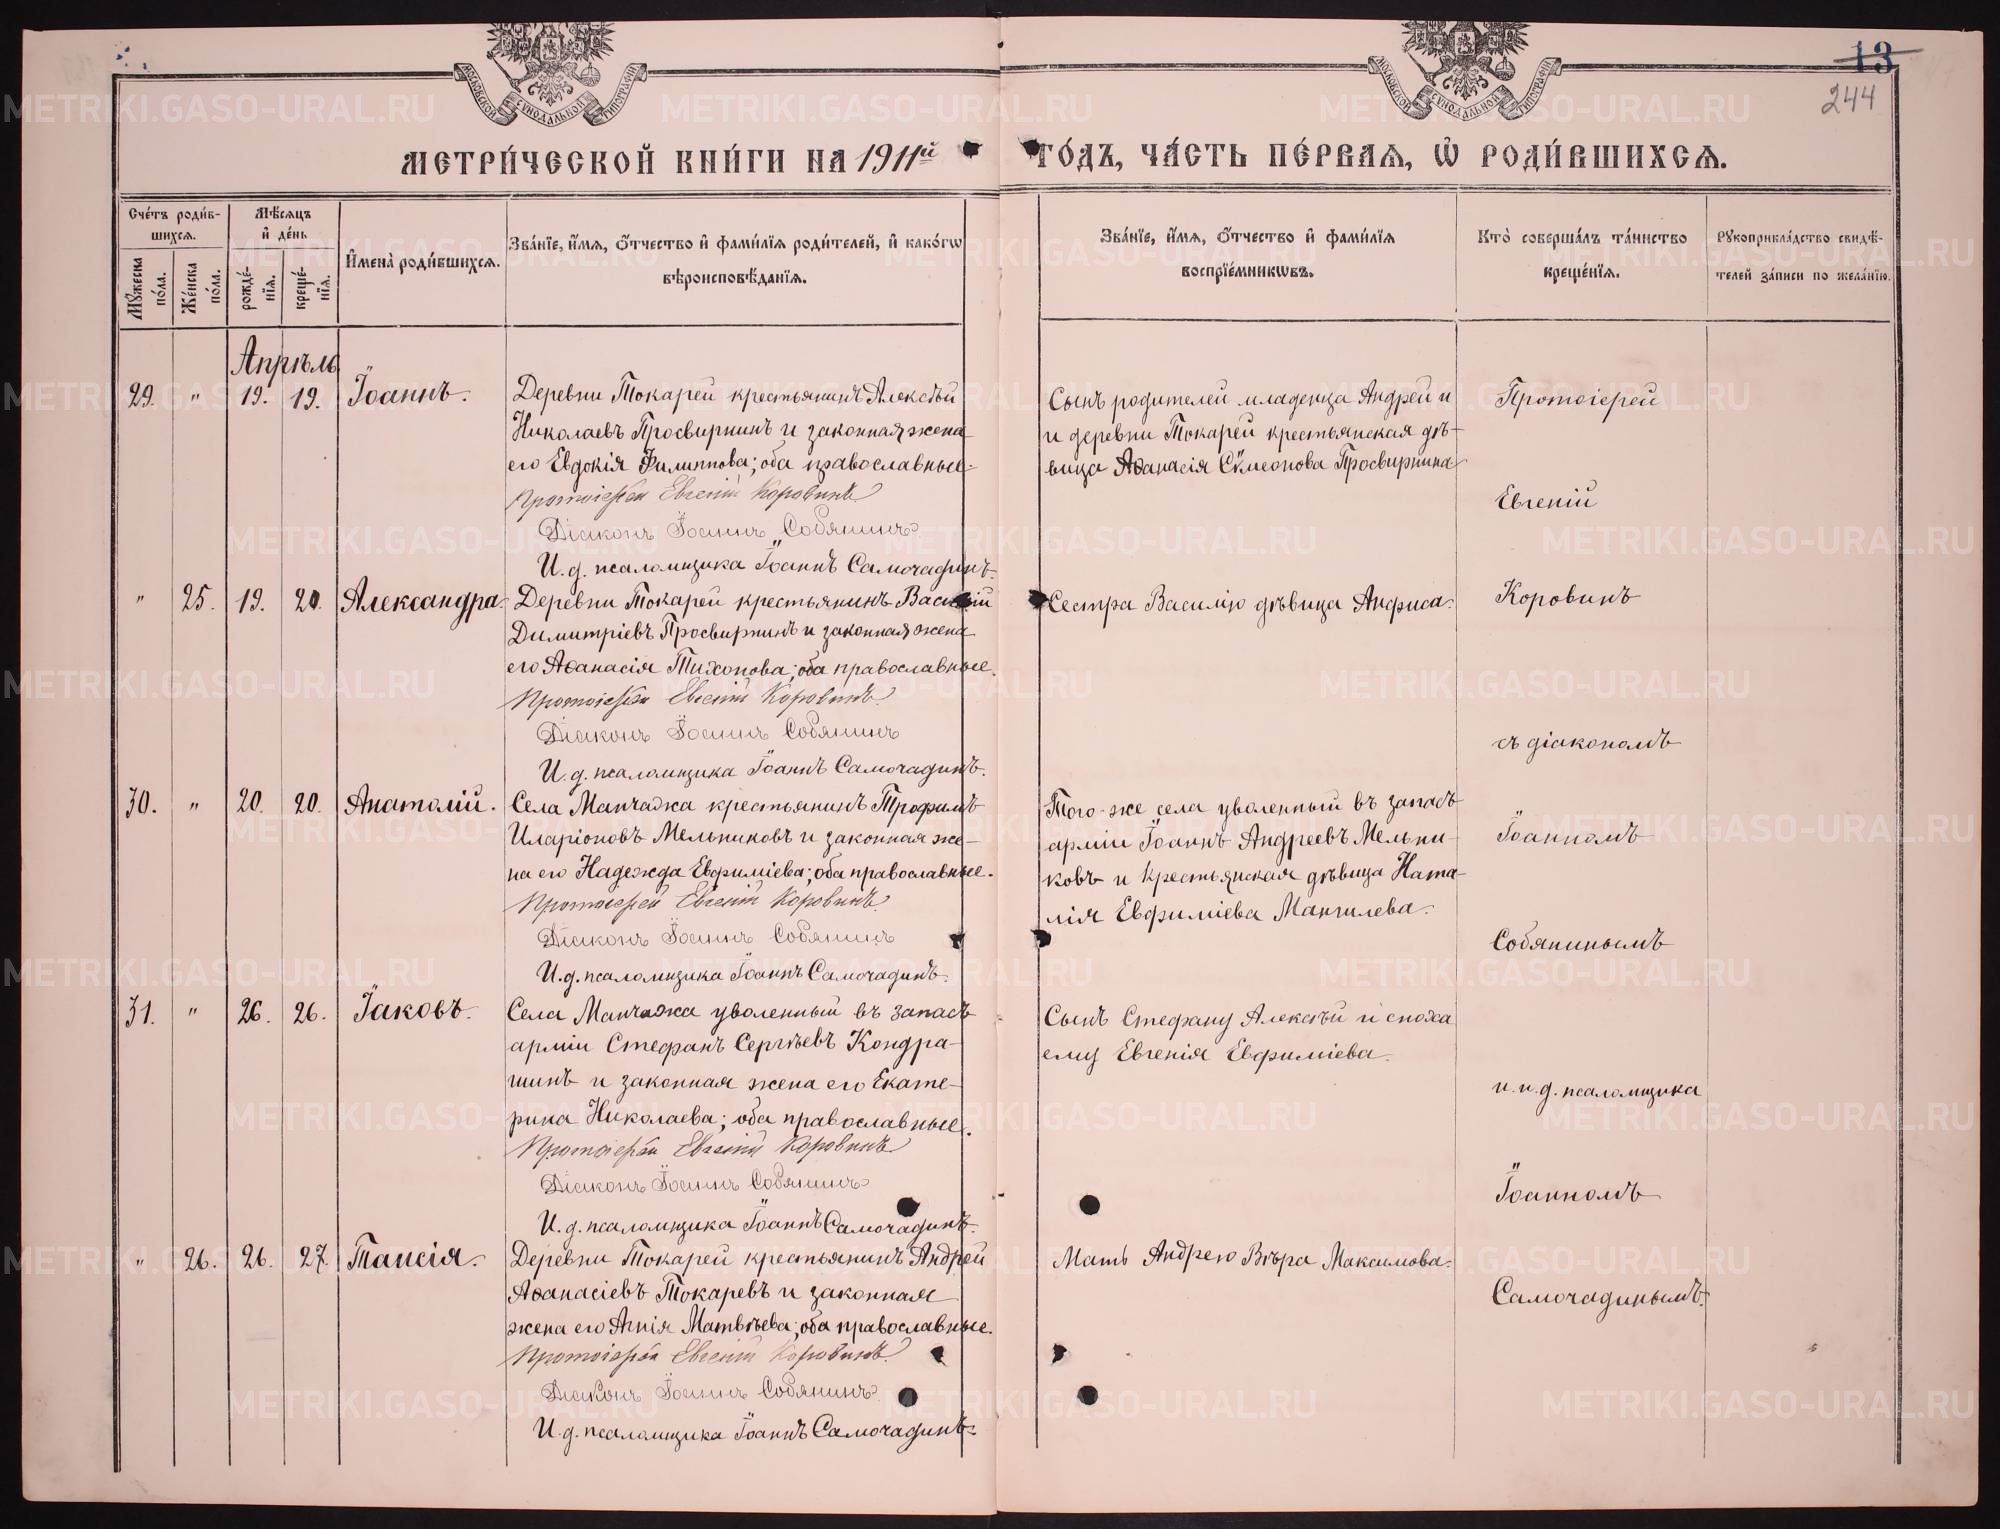 МОСКОВСКОЙ СѴНОДАЛЬНОЙ ТИПОГРАФІИ
МОСКОВСКОЙ СѴНОДАЛЬНОЙ ТИПОГРАФІИ
13
244
МЕТРИ́ЧЕСКОЙ КНИ́ГИ НА 1911й ГО́ДЪ, ЧА́СТЬ ПЕ́РВАЯ, Ѡ҆ РОДИ́ВШИХСЯ.
Сче́тъ роди́в-
шихся.
Мꙋ́жеска по́ла.
Же́нска по́ла.
Мѣ́сяцъ
и҆ де́нь
рожде́-
нїя.
креще́-
нїя.
И҆мена̀ роди́вшихся.
Зва́нїе, и҆́мя, ѻ҆́тчество и҆ фами́лїя роди́телей, и҆ како́гѡ
вѣроисповѣ́данїя.
Зва́нїе, и҆́мя, ѻ҆́тчество и҆ фами́лїя
воспрїе́мникѡвъ.
Кто̀ соверша́лъ та́инство
креще́нїя.
Рꙋкоприкла́дство свидѣ́-
телей за́писи по жела́нїю.
Апрѣль
29. " 19. 19. Іоаннъ.
Деревни Токарей крестьянинъ Алексѣй
Николаевъ Просвирнинъ и законная жена
его Евдокія Филиппова; оба православные.
Протоіерей Евгеній Коровинъ
Діаконъ Іоаннъ Собянинъ
И. д. псаломщика Іоаннъ Самочадинъ.
Сынъ родителей младенца Андрей и
и деревни Токарей крестьянская дѣ-
вица Аѳанасія Сѵмеонова Просвирнина
" 25. 19. 20. Александра.
Деревни Токарей крестьянинъ Василій
Димитріевъ Просвирнинъ и законная жена
его Аѳанасія Тихонова; оба православные.
Протоіерей Евгеній Коровинъ
Діаконъ Іоаннъ Собянинъ
И. д. псаломщика Іоаннъ Самочадинъ.
Сестра Василію дѣвица Анфиса.
30. " 20. 20. Анатолій.
Села Манчажа крестьянинъ Трофимъ
Иларіоновъ Мельниковъ и законная же-
на его Надежда Евфиміева; оба православные.
Протоіерей Евгеній Коровинъ
Діаконъ Іоаннъ Собянинъ
И. д. псаломщика Іоаннъ Самочадинъ.
Того-же села уволенный въ запасъ
арміи Іоаннъ Андреевъ Мельни-
ковъ и крестьянская дѣвица Ната-
лія Евфиміева Мангилева.
31. " 26. 26. Іаковъ.
Села Манчажа уволенный въ запасъ
арміи Стефанъ Сергѣевъ Кондра-
шинъ и законная жена его Екате-
рина Николаева; оба православные.
Протоіерей Евгеній Коровинъ
Діаконъ Іоаннъ Собянинъ
И. д. псаломщика Іоаннъ Самочадинъ.
Сынъ Стефану Алексѣй и сноха
ему Евгенія Евфиміева.
" 26. 26. 27. Таисія.
Деревни Токарей крестьянинъ Андрей
Аѳанасіевъ Токаревъ и законная
жена его Агнія Матвѣева; оба православные.
Протоіерей Евгеній Коровинъ
Діаконъ Іоаннъ Собянинъ
И. д. псаломщика Іоаннъ Самочадинъ.
Мать Андрею Вѣра Максимова.
Протоіерей
Евгеній
Коровинъ
съ діакономъ
Іоанномъ
Собянинымъ
и и. д. псаломщика
Іоанномъ
Самочадинымъ.
METRIKI.GASO-URAL.RU